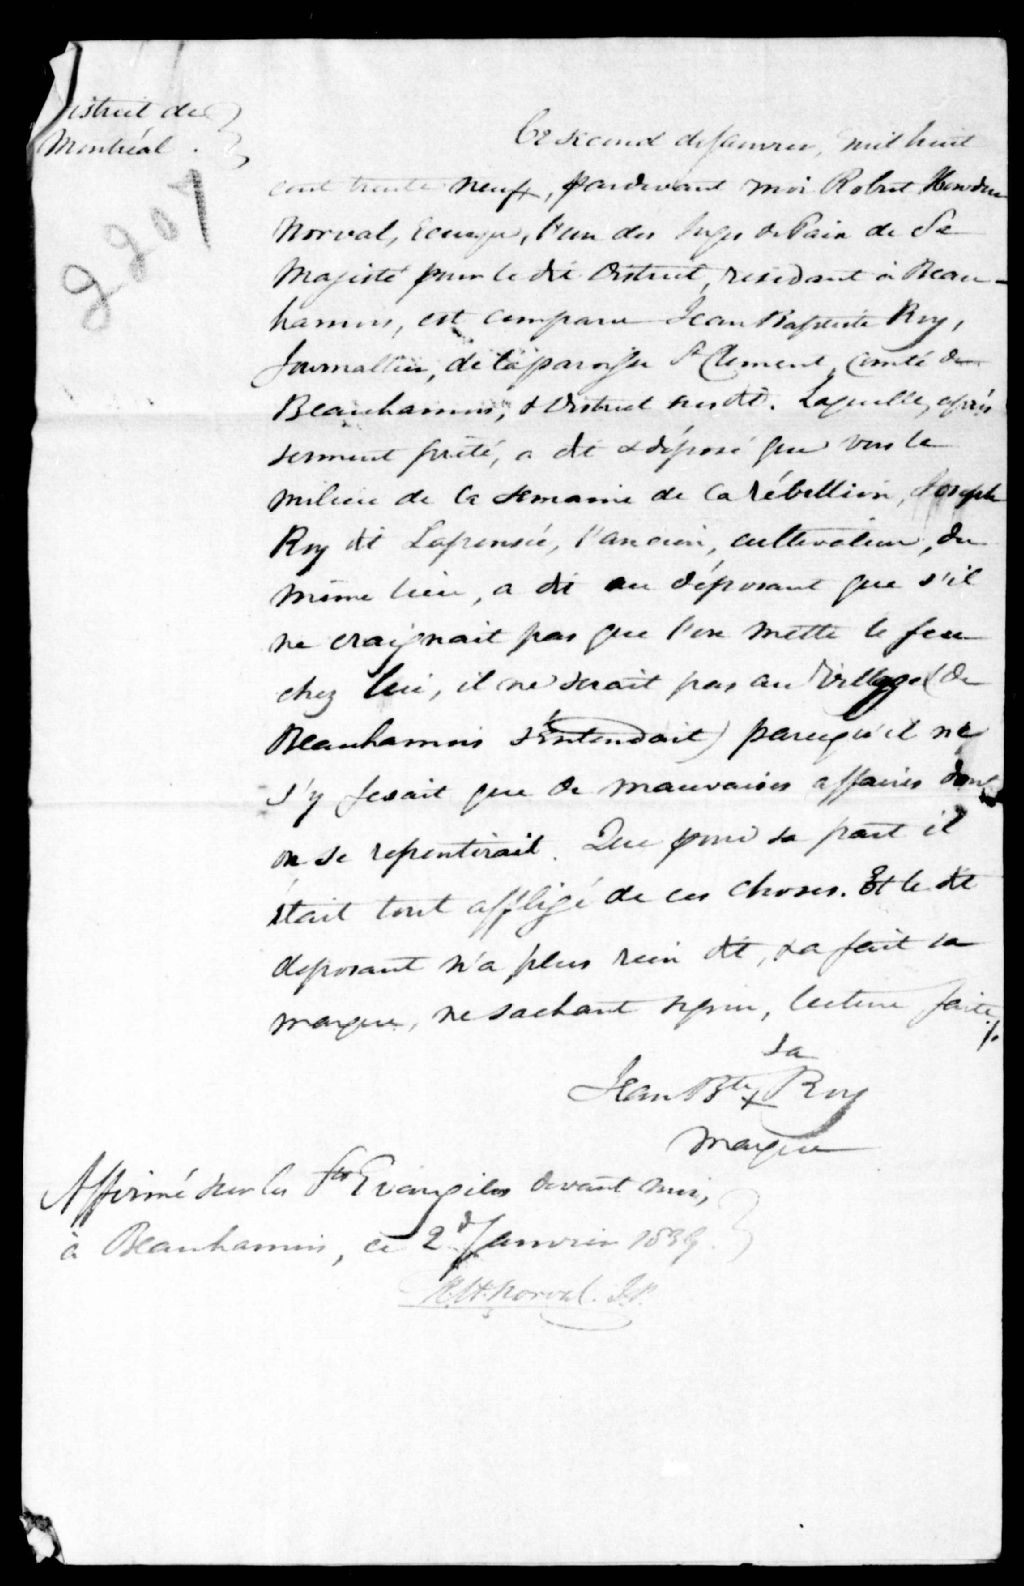 District de
Montréal.
2207
Ce second de Janvier, mil huit
cent trente neuf, pardevant moi Robert Howden
Norval, Ecuyer, l'un des Juges de Paix de Sa
Majesté pour le dit District, résidant à Beau-
harnois, est comparu Jean Baptiste Roy,
Journallier, de la paroisse St Clement, Comté de
Beauharnois, & District susdit. Laquelle, après
serment prêté, a dit & déposé que vers le
milieu de la semaine de la rébellion, Joseph
Roy dit Lapensée, l'ancien, cultivateur, du
même lieu, a dit au déposant que s'il
ne craignait pas que l'on mette le feu
chez lui, il ne serait pas au village (de
Beauharnois s'entendait) parcequ'il ne
s'y fesait que de mauvaises affaires dont
on se repentirait. Que pour sa part il
était tout affligé de ces choses. Et le dit
deposant n'a plus rien dit, & a fait sa
marque, ne sachant signer, lecture faite./.
sa
Jean Bte x Roy
marque
Affirmé sur les Sts Evangiles devant moi,
à Beauharnois, ce 2d Janvier 1839.
R.H. Norval. J.P.